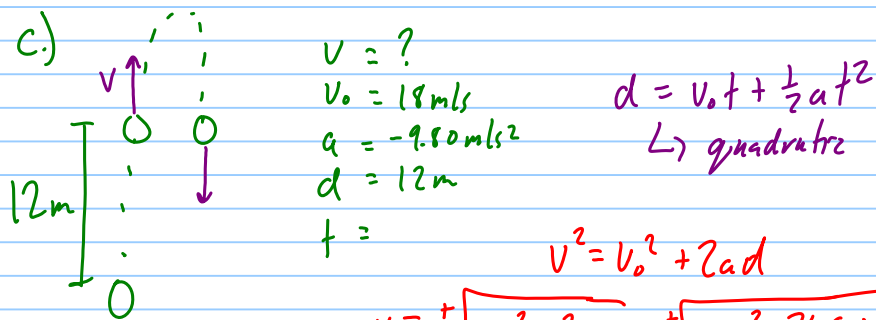 c.)
v
12m
v = ?
v₀ = 18m/s
a = -9.80m/s²
d = 12m
t =
d = v₀t + ½at²
↳ quadratic
v² = v₀² + 2ad